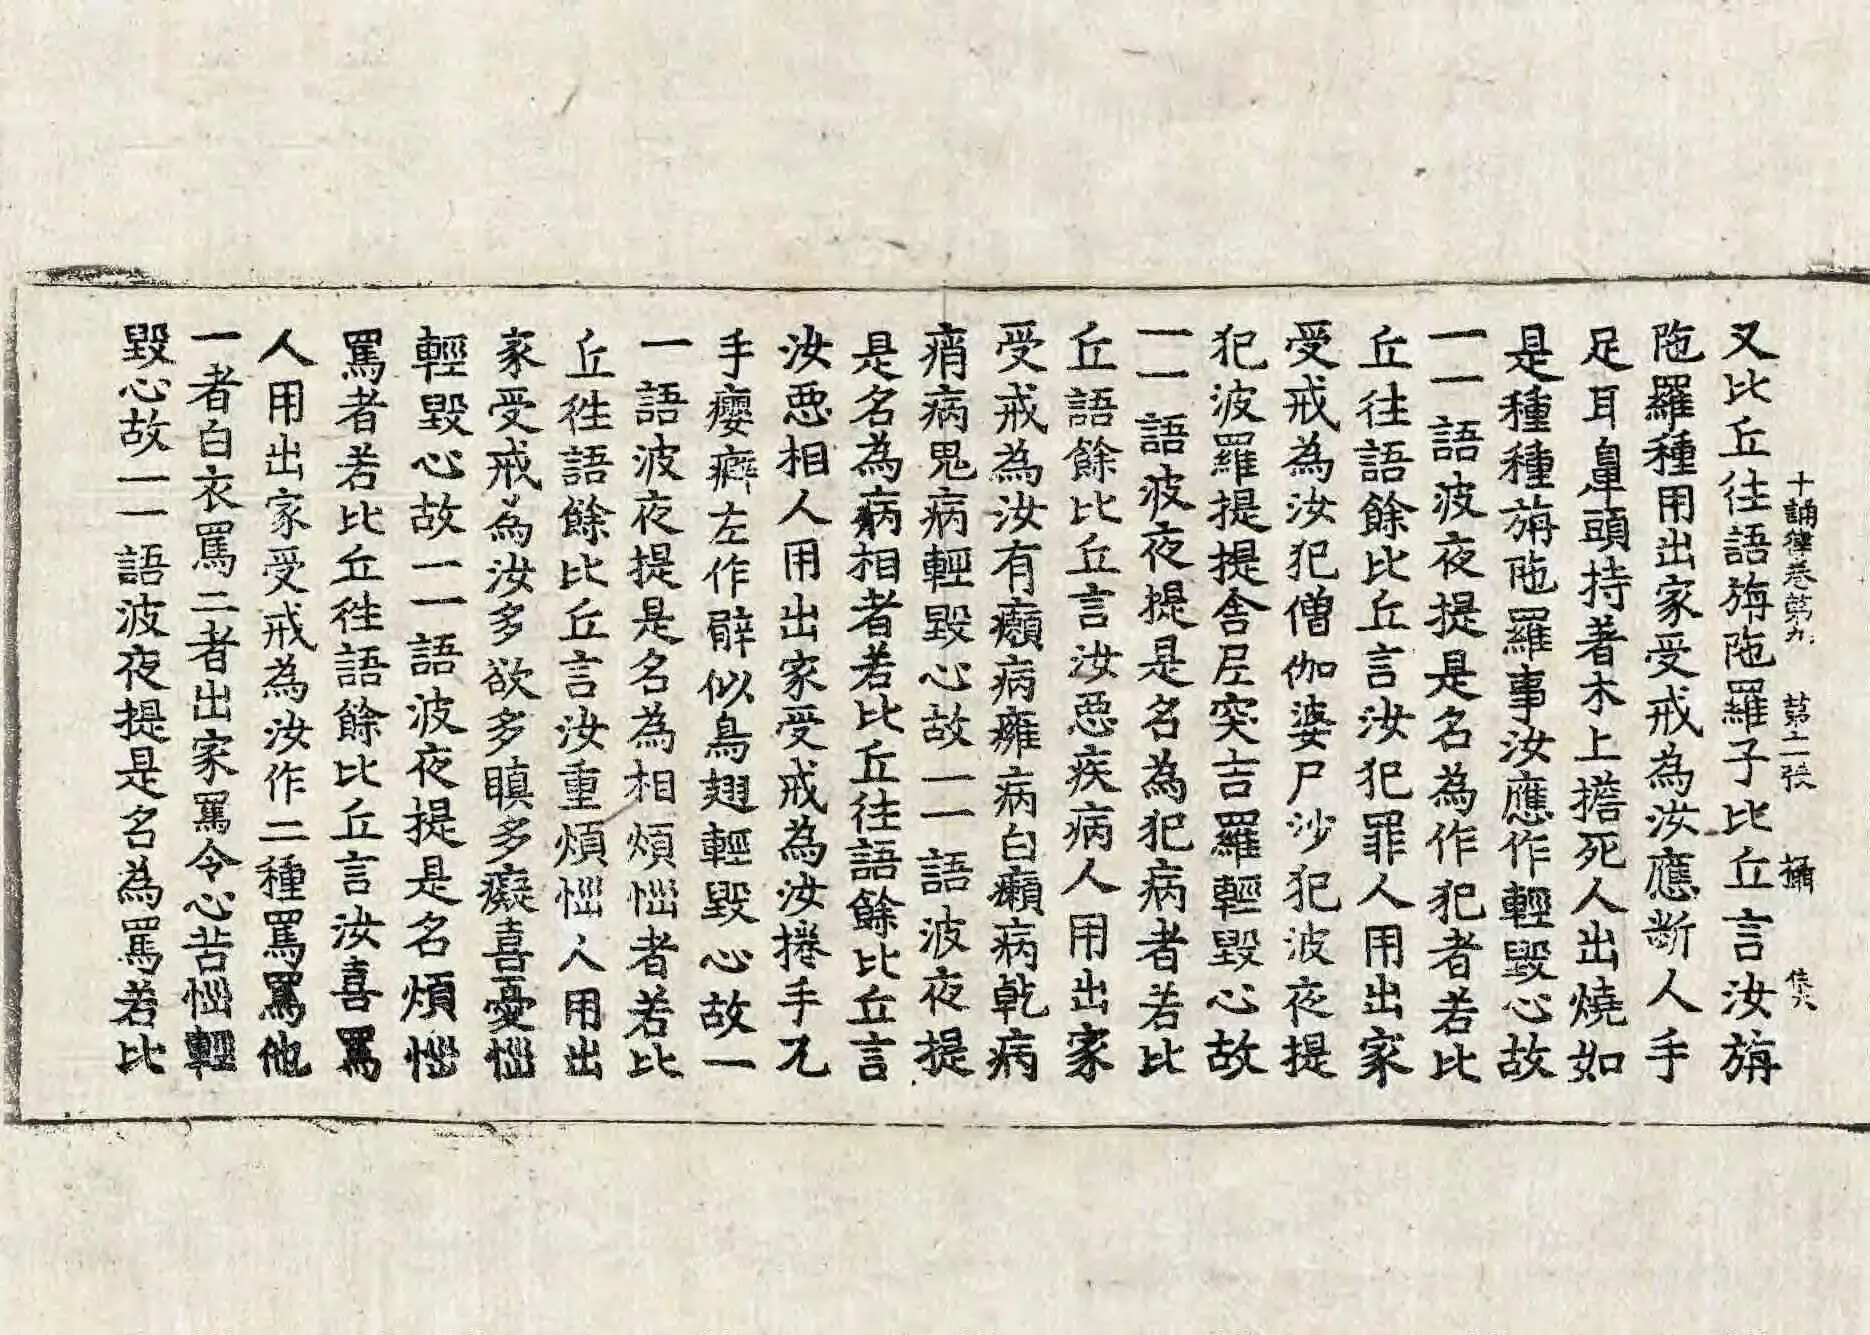 十誦律卷第九 第二張 攝 隹六
又比丘往語旃陁羅子比丘言汝旃
陁羅種用出家受戒為汝應斷人手
足耳鼻頭持著木上擔死人出燒如
是種種旃陁羅事汝應作輕毀心故
一一語波夜提是名為作犯者若比
丘往語餘比丘言汝犯罪人用出家
受戒為汝犯僧伽婆尸沙犯波夜提
犯波羅提提舍尼突吉羅輕毀心故
一一語波夜提是名為犯病者若比
丘語餘比丘言汝惡疾病人用出家
受戒為汝有癩病癰病白癩病乾病
痟病鬼病輕毀心故一一語波夜提
是名為病相者若比丘往語餘比丘言
汝惡相人用出家受戒為汝捲手兀
手癭癖左作臂似鳥翅輕毀心故一
一語波夜提是名為相煩惱者若比
丘徃語餘比丘言汝重煩惱人用出
家受戒為汝多欲多瞋多癡喜憂惱
輕毀心故一一語波夜提是名煩惱
罵者若比丘徃語餘比丘言汝喜罵
人用出家受戒為汝作二種罵罵他
一者白衣罵二者出家罵令心苦惱輕
毀心故一一語波夜提是名為罵若比